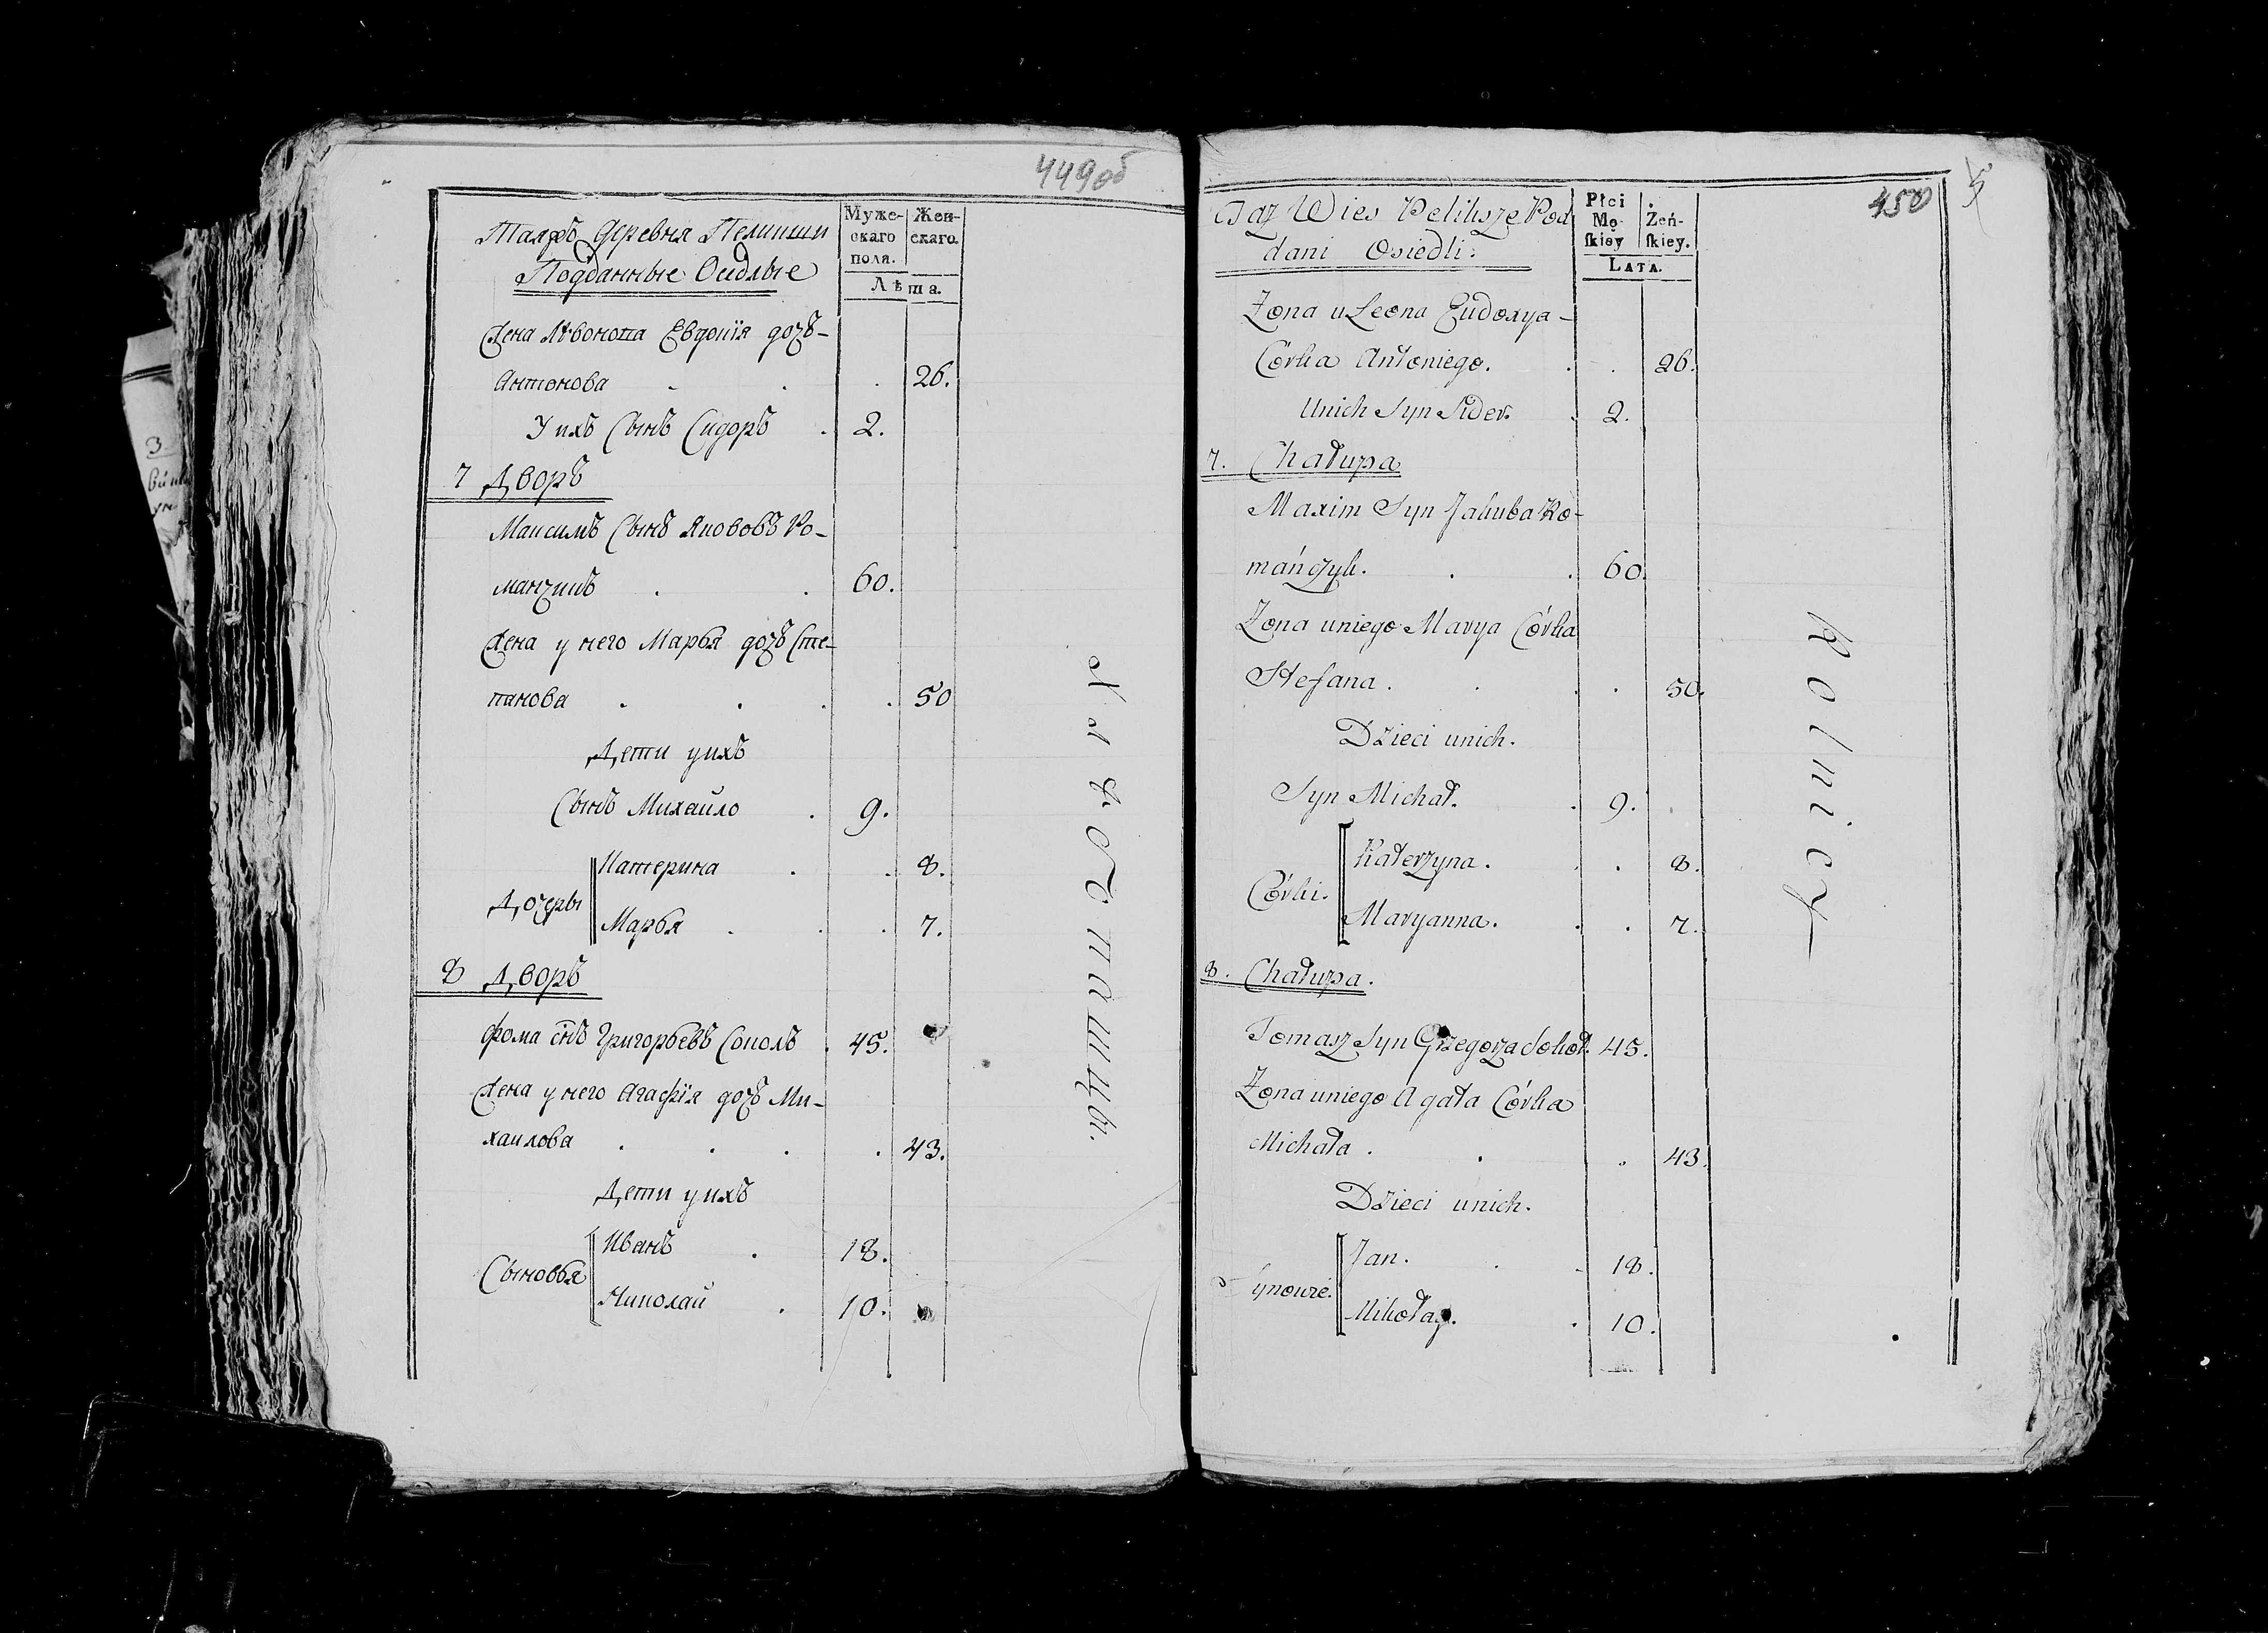 449об
Таяжъ Деревня Пелищи
Подданные Осидлые
Муже-
скаго
пола.
Жен-
скаго.
Лѣта.
Жена Лѣвонова Евдокія дочь
Антонова . . . 26.
У ихъ Сынъ Сидоръ . 2.
7 Дворъ
Максимъ Сынъ Якововъ Ро-
манчикъ . . 60.
Жена у него Марья дочь Сте-
панова . . . . 50
Дети уихъ
Сынъ Михайло . 9.
Дочеры
Катерина . . 8.
Марья . . . 7.
8 Дворъ
Фома снъ Григорьевъ Соколъ . 45.
Жена у него Агафія дочь Ми-
хаилова . . . . 43.
Дети уихъ
Сыновья
Иванъ . 18.
Николай . 10.
450
Taz Wies Peliksze Pod
dani Osiedli.
Płci
Mę-
skiey
Żeń-
skiey.
LATA.
Żona u Leona Eudoxya -
Córka Antoniego. . . 26.
Unich Syn Sidor. . 2.
7. Chałupa
Maxim Syn Jakuba Ro-
mańczyk. . . 60.
Żona uniego Marya Córka
Stefana . . . . 50.
Dzieci unich.
Syn Michał. . 9.
Córki.
Katerzyna . . . 8.
Maryanna . . . 7.
8. Chałupa.
Tomasz Syn Grzegorza Sokoł. 45.
Żona uniego Agata Córka
Michała . . . 43.
Dzieci unich.
Synowie.
Jan. . . 18.
Mikołay. . 10.
Rolnicy